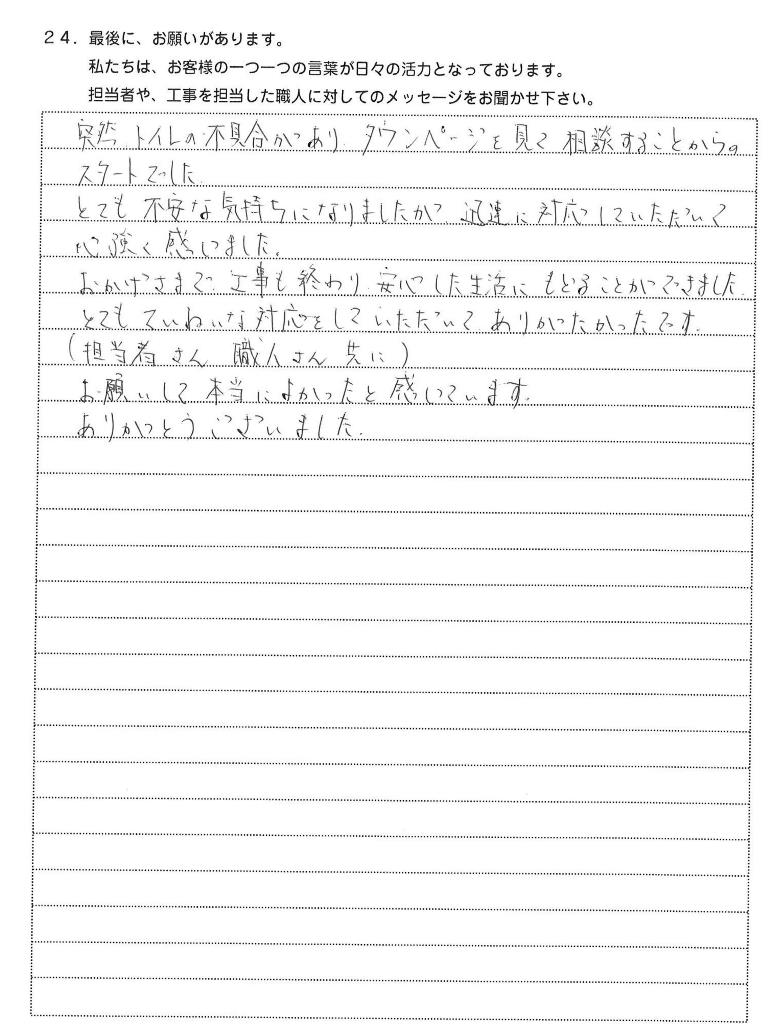 24．最後に、お願いがあります。
私たちは、お客様の一つ一つの言葉が日々の活力となっております。
担当者や、工事を担当した職人に対してのメッセージをお聞かせ下さい。
突然 トイレの不具合があり タウンページを見て 相談することからの
スタートでした.
とても 不安な気持ちになりましたが 迅速に対応していただいて
心強く感じました。
おかげさまで 工事も終わり 安心した生活に もどることができました.
とてもていねいな対応をしていただいて ありがたかったです.
(担当者さん 職人さん 共に)
お願いして 本当によかったと 感じています.
ありがとうございました.